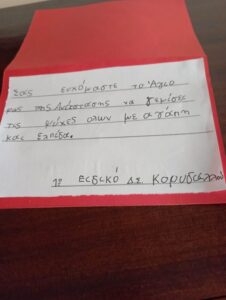 Σας ευχόμαστε το Άγιο
φως της Ανάστασης να γεμίσει
τις ψυχές όλων με αγάπη
και ελπίδα.
1ο Ειδικό Δ.Σ. Κορυδαλλού